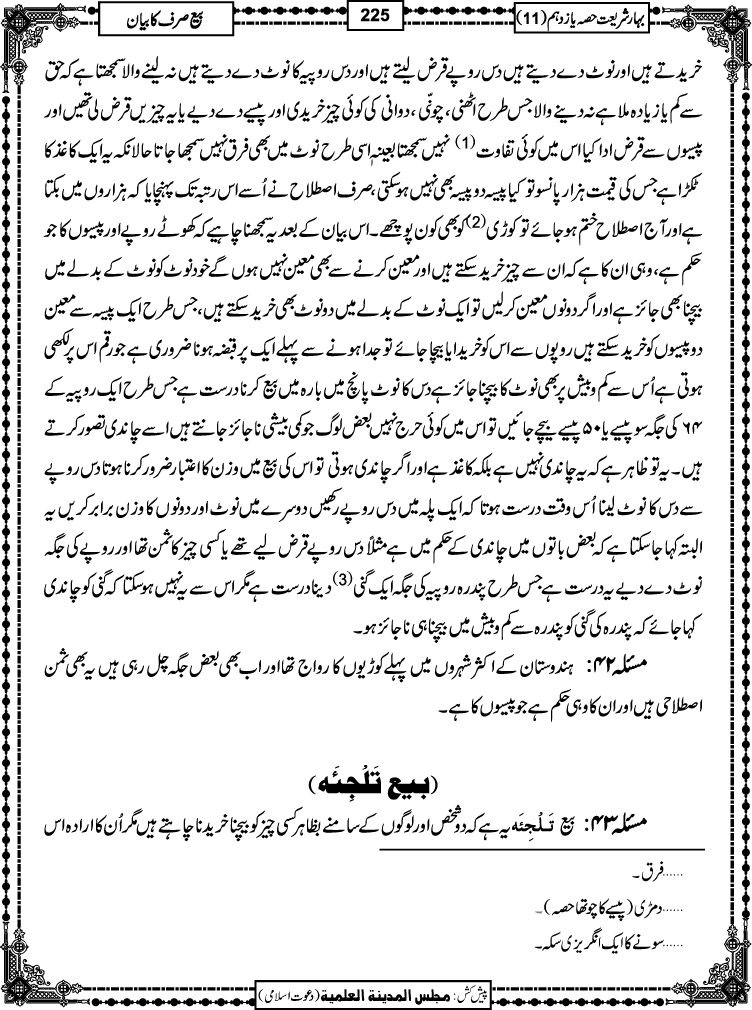 بہار شریعت حصہ یازدہم (11)
225
بیع صرف کا بیان
خریدتے ہیں اور نوٹ دے دیتے ہیں دس روپے قرض لیتے ہیں اور دس روپیہ کا نوٹ دے دیتے ہیں نہ لینے والا سمجھتا ہے کہ حق
سے کم یا زیادہ ملا ہے نہ دینے والا جس طرح اٹھنی، چونّی، دوانی کی کوئی چیز خریدی اور پیسے دے دیے یا یہ چیزیں قرض لی تھیں اور
پیسوں سے قرض ادا کیا اس میں کوئی تفاوت (1) نہیں سمجھتا بعینہٖ اسی طرح نوٹ میں بھی فرق نہیں سمجھا جاتا حالانکہ یہ ایک کاغذ کا
ٹکڑا ہے جس کی قیمت ہزار پانسو تو کیا پیسہ دو پیسہ بھی نہیں ہوسکتی، صرف اصطلاح نے اُسے اس رتبہ تک پہنچایا کہ ہزاروں میں بکتا
ہے اور آج اصطلاح ختم ہو جائے تو کوڑی (2) کو بھی کون پوچھے۔ اس بیان کے بعد یہ سمجھنا چاہیے کہ کھوٹے روپے اور پیسوں کا جو
حکم ہے، وہی ان کا ہے کہ ان سے چیز خرید سکتے ہیں اور معین کرنے سے بھی معین نہیں ہوں گے خود نوٹ کو نوٹ کے بدلے میں
بیچنا بھی جائز ہے اور اگر دونوں معین کرلیں تو ایک نوٹ کے بدلے میں دو نوٹ بھی خرید سکتے ہیں، جس طرح ایک پیسہ سے معین
دو پیسوں کو خرید سکتے ہیں روپوں سے اس کو خریدا یا بیچا جائے تو جدا ہونے سے پہلے ایک پر قبضہ ہونا ضروری ہے جو رقم اس پر لکھی
ہوتی ہے اُس سے کم و بیش پر بھی نوٹ کا بیچنا جائز ہے دس کا نوٹ پانچ میں بارہ میں بیع کرنا درست ہے جس طرح ایک روپیہ کے
۶۴ کی جگہ سو پیسے یا ۵۰ پیسے بیچے جائیں تو اس میں کوئی حرج نہیں بعض لوگ جو کمی بیشی ناجائز جانتے ہیں اسے چاندی تصور کرتے
ہیں۔ یہ تو ظاہر ہے کہ یہ چاندی نہیں ہے بلکہ کاغذ ہے اور اگر چاندی ہوتی تو اس کی بیع میں وزن کا اعتبار ضرور کرنا ہوتا دس روپے
سے دس کا نوٹ لینا اُس وقت درست ہوتا کہ ایک پلہ میں دس روپے رکھیں دوسرے میں نوٹ اور دونوں کا وزن برابر کریں یہ
البتہ کہا جاسکتا ہے کہ بعض باتوں میں چاندی کے حکم میں ہے مثلاً دس روپے قرض لیے تھے یا کسی چیز کا ثمن تھا اور روپے کی جگہ
نوٹ دے دیے یہ درست ہے جس طرح پندرہ روپیہ کی جگہ ایک گنی (3) دینا درست ہے مگر اس سے یہ نہیں ہوسکتا کہ گنی کو چاندی
کہا جائے کہ پندرہ کی گنی کو پندرہ سے کم و بیش میں بیچنا ہی ناجائز ہو۔
مسئلہ ۴۲: ہندوستان کے اکثر شہروں میں پہلے کوڑیوں کا رواج تھا اور اب بھی بعض جگہ چل رہی ہیں یہ بھی ثمن
اصطلاحی ہیں اور ان کا وہی حکم ہے جو پیسوں کا ہے۔
(بیع تَلْجِئَہ)
مسئلہ ۴۳: بیع تَلْجِئَہ یہ ہے کہ دو شخص اور لوگوں کے سامنے بظاہر کسی چیز کو بیچنا خریدنا چاہتے ہیں مگر اُن کا ارادہ اس
......فرق۔
......دمڑی (پیسے کا چوتھا حصہ)۔
......سونے کا ایک انگریزی سکہ۔
پیش کش: مجلس المدینة العلمیة (دعوت اسلامی)